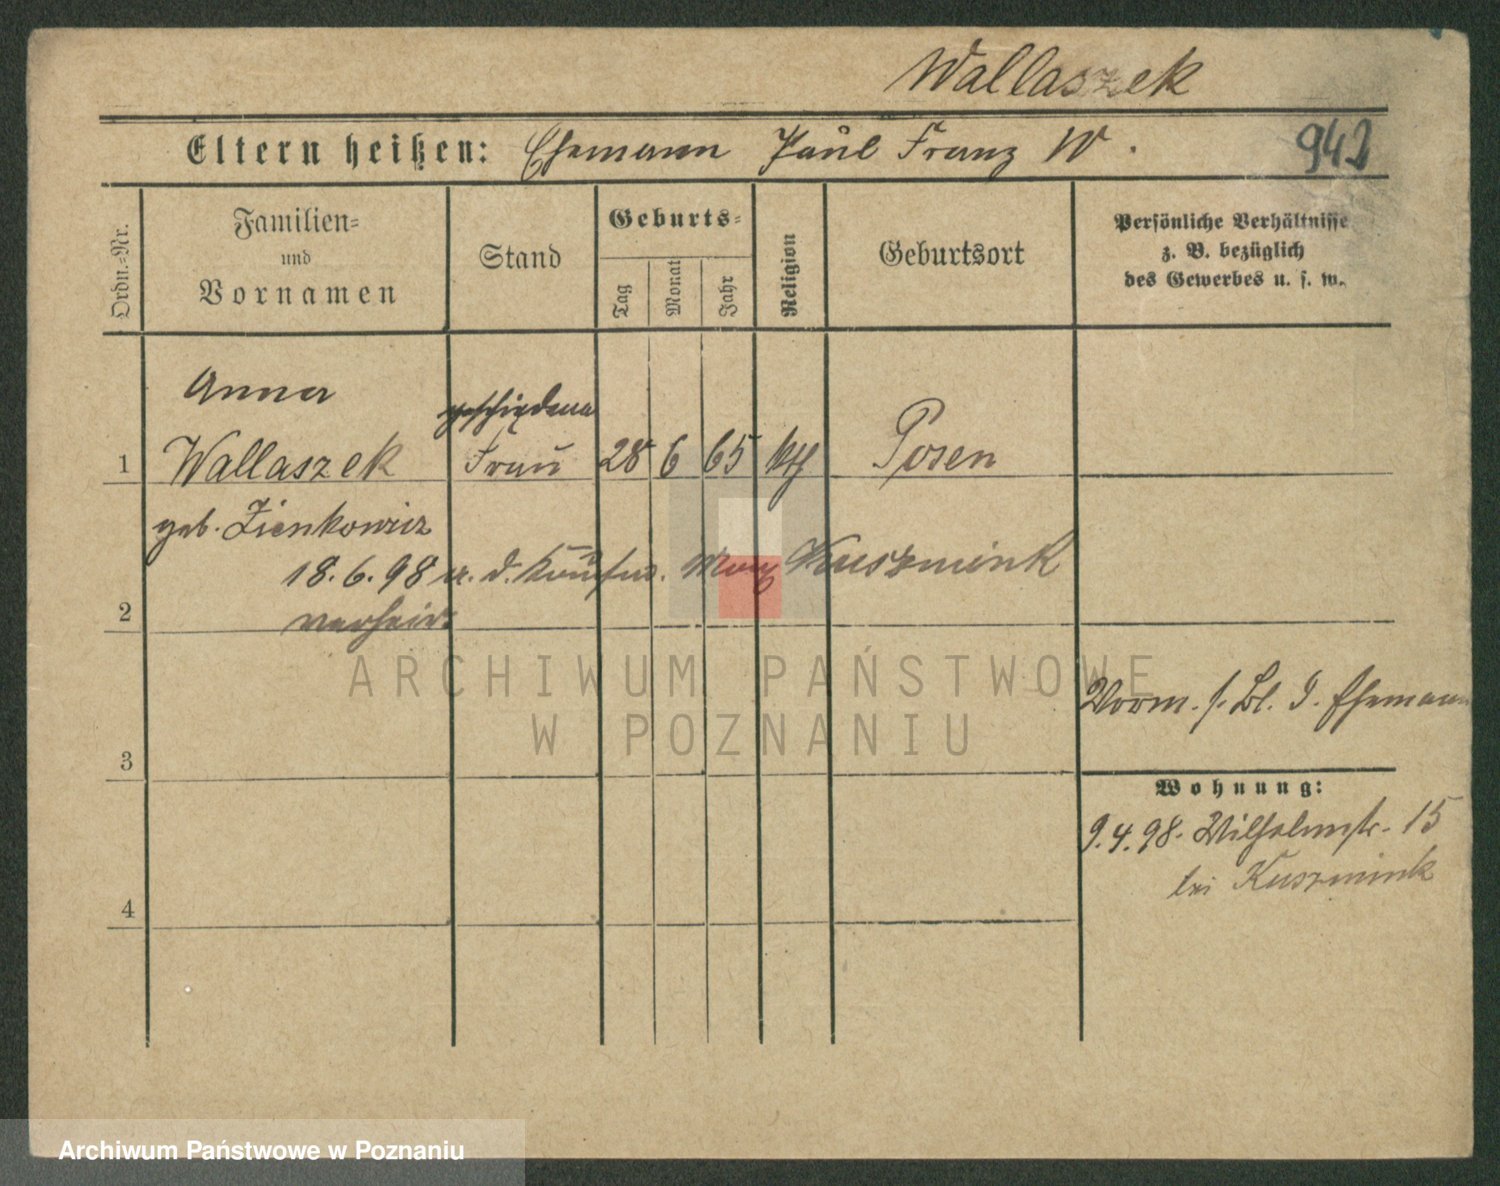 Wallaszek
Eltern heißen: Ehemann Paul Franz W.
942
Ordn.-Nr.
Familien-
und
Vornamen
Stand
Geburts-
Tag
Monat
Jahr
Religion
Geburtsort
Persönliche Verhältnisse
z. B. bezüglich
des Gewerbes u. s. w.
Anna geschiedene
1 Wallaszek Frau 28 6 65 kth Posen
geb. Zienkowicz
18.6.98 m. d. Kaufm. Max Kuszmink
2 verheir.
ARCHIWUM PAŃSTWOWE
W POZNANIU
Vorm. s. Bl. d. Ehemann
3
Wohnung:
9.4.98. Wilhelmstr. 15
bei Kuszmink
4
Archiwum Państwowe w Poznaniu